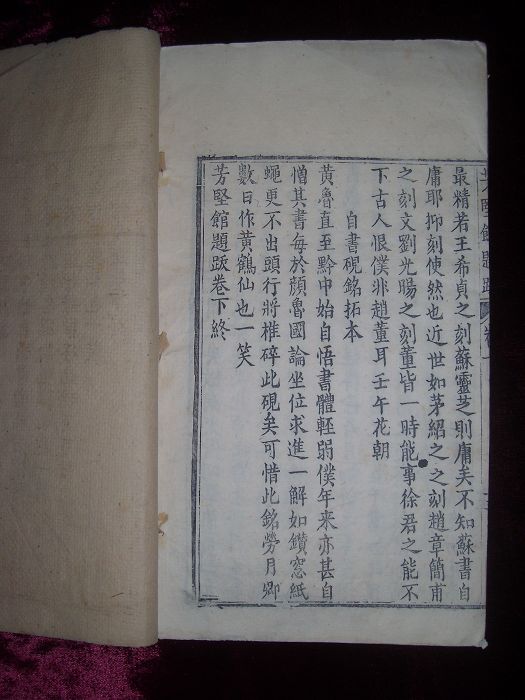 芳堅館題跋
最精若王希貞之刻蘇靈芝則庸矣不知蘇書自
庸耶抑刻使然也近世如茅紹之之刻趙章簡甫
之刻文劉光暘之刻董皆一時能事徐君之能不
下古人恨僕非趙董耳壬午花朝
自書硯銘拓本
黃魯直至黔中始自悟書體輕弱僕年来亦甚自
憎其書每於顔魯國論坐位求進一解如鑽窓紙
蠅更不出頭行將椎碎此硯矣可惜此銘勞月卿
數日作黃鶴仙也一笑
芳堅館題跋卷下終